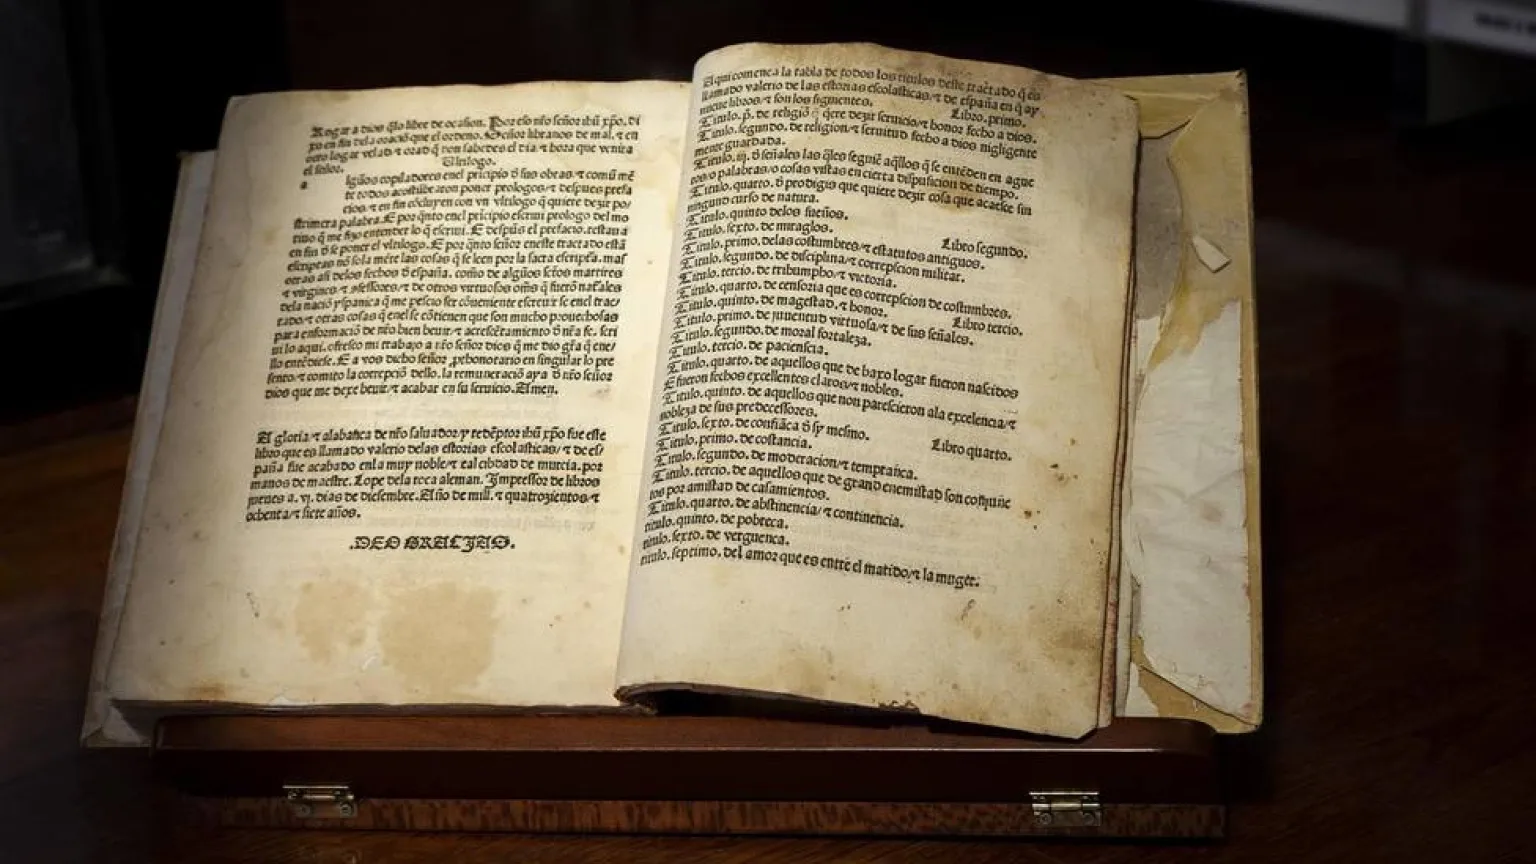 Rogar a dios q̃lo libre de ocasion. Por eso nr̃o señor ihũ xp̃o. di
xo en fin dela oraciõ que el ordeno. Señor libranos de mal. ⁊ en
otro logar velad ⁊ orad q̃ non sabedes el dia ⁊ hora que verna
el señor.
Ultilogo.
a lgũos copiladores enel prĩcipio õ sus obras ⁊ comũ mẽ
te todos acostũbraron poner prologos ⁊ despues prefa
cios ⁊ en fin cõcluyen con vn vltilogo q̃ quiere dezir po/
strimera palabra. E por q̃nto enel prĩcipio escriui prologo del mo
tiuo q̃ me fizo entender lo q̃ escriui. E despũs el prefacio. restaua
en fin õ se poner el vltilogo. E por q̃nto señor eneste tractado estã
escriptas nõ sola mẽte las cosas q̃ se leen por la sacra escript̃a. mas
otras asi delos fechos õ españa. como de algũos sctõs martires
⁊ virgines ⁊ ↄfessores ⁊ de otros virtuosos oms̃ q̃ fuerõ nat̃ales
dela naciõ yspanica q̃ me pescio ser cõueniente escreuir se enel trac/
tado ⁊ otras cosas q̃ enel se cõtienen que son mucho prouechosas
para enformaciõ de nr̃o bien beuir ⁊ acrescẽtamiento õ nr̃a fe. scri
ui lo aqui. ofresco mi trabajo a nr̃o señor dios q̃ me dio gr̃a q̃ ene/
llo entẽdiese. E a vos dicho señor ꝓthonotario en singular lo pre
sento ⁊ comito la correpciõ dello. la remuneraciõ aya õ nr̃o señor
dios que me dexe beuir ⁊ acabar en su seruicio. Amen.
A gloria ⁊ alabança de nr̃o saluador y redẽptor ihũ xp̃o fue este
libro que es llamado valerio delas estorias escolasticas ⁊ de es/
paña fue acabado enla muy noble ⁊ leal cibdad de murcia. por
manos de maestre. Lope dela roca aleman. Impressor de libros
jueues a. vj. dias de disiembre. Año de mill. ⁊ quatrozientos ⁊
ochenta ⁊ siete años.
.DEO GRACIAS.
Aqui comença la tabla de todos los titulos deste tractado q̃ es
llamado valerio de las estorias escolasticas ⁊ de españa en q̃ ay
nueue libros ⁊ son los siguientes.
Libro. primo.
Titulo. p̃. de religiõ q̃ q̃ere dezir seruicio ⁊ honor fecho a dios.
Titulo. segundo. de religion ⁊ seruitud fecho a dios nigligente
mente guardada.
Titulo. iij. õ señales las q̃les seguiẽ aq̃llos q̃ se entẽden en ague
ros o palabras o cosas vistas en cierta dispusicion de tiempo.
Titulo. quarto. õ prodigis que quiere dezir cosa que acaesce sin
ningund curso de natura.
Titulo. quinto delos sueños.
Titulo. sexto. de miraglos.
Libro segundo.
Titulo. primo. de las costumbres ⁊ estatutos antiguos.
Titulo. segundo. de disciplina ⁊ correpscion militar.
Titulo. tercio. de triumpho ⁊ victoria.
Titulo. quarto. de censoria que es correpscion de costumbres.
Titulo. quinto. de magestad ⁊ honor.
Libro tercio.
Titulo. primo. de juuentud virtuosa ⁊ de sus señales.
Titulo. segundo. de moral fortaleza.
Titulo. tercio. de paciensia.
Titulo. quarto. de aquellos que de baxo logar fueron nascidos
E fueron fechos excellentes claros ⁊ nobles.
Titulo. quinto. de aquellos que non parescieron ala excelencia ⁊
nobleza de sus predecessores.
Titulo. sexto. de confiãca õ sy mesmo.
Libro quarto.
Titulo. primo. de costancia.
Titulo. segundo. de moderacion ⁊ temprãca.
Titulo. tercio. de aquellos que de grand enemistad son conjũne
tos por amistad de casamientos.
Titulo. quarto. de abstinencia ⁊ continencia.
titulo. quinto. de pobreça.
titulo. sexto. de verguença.
titulo. septimo. del amor que es entre el marido ⁊ la muger.